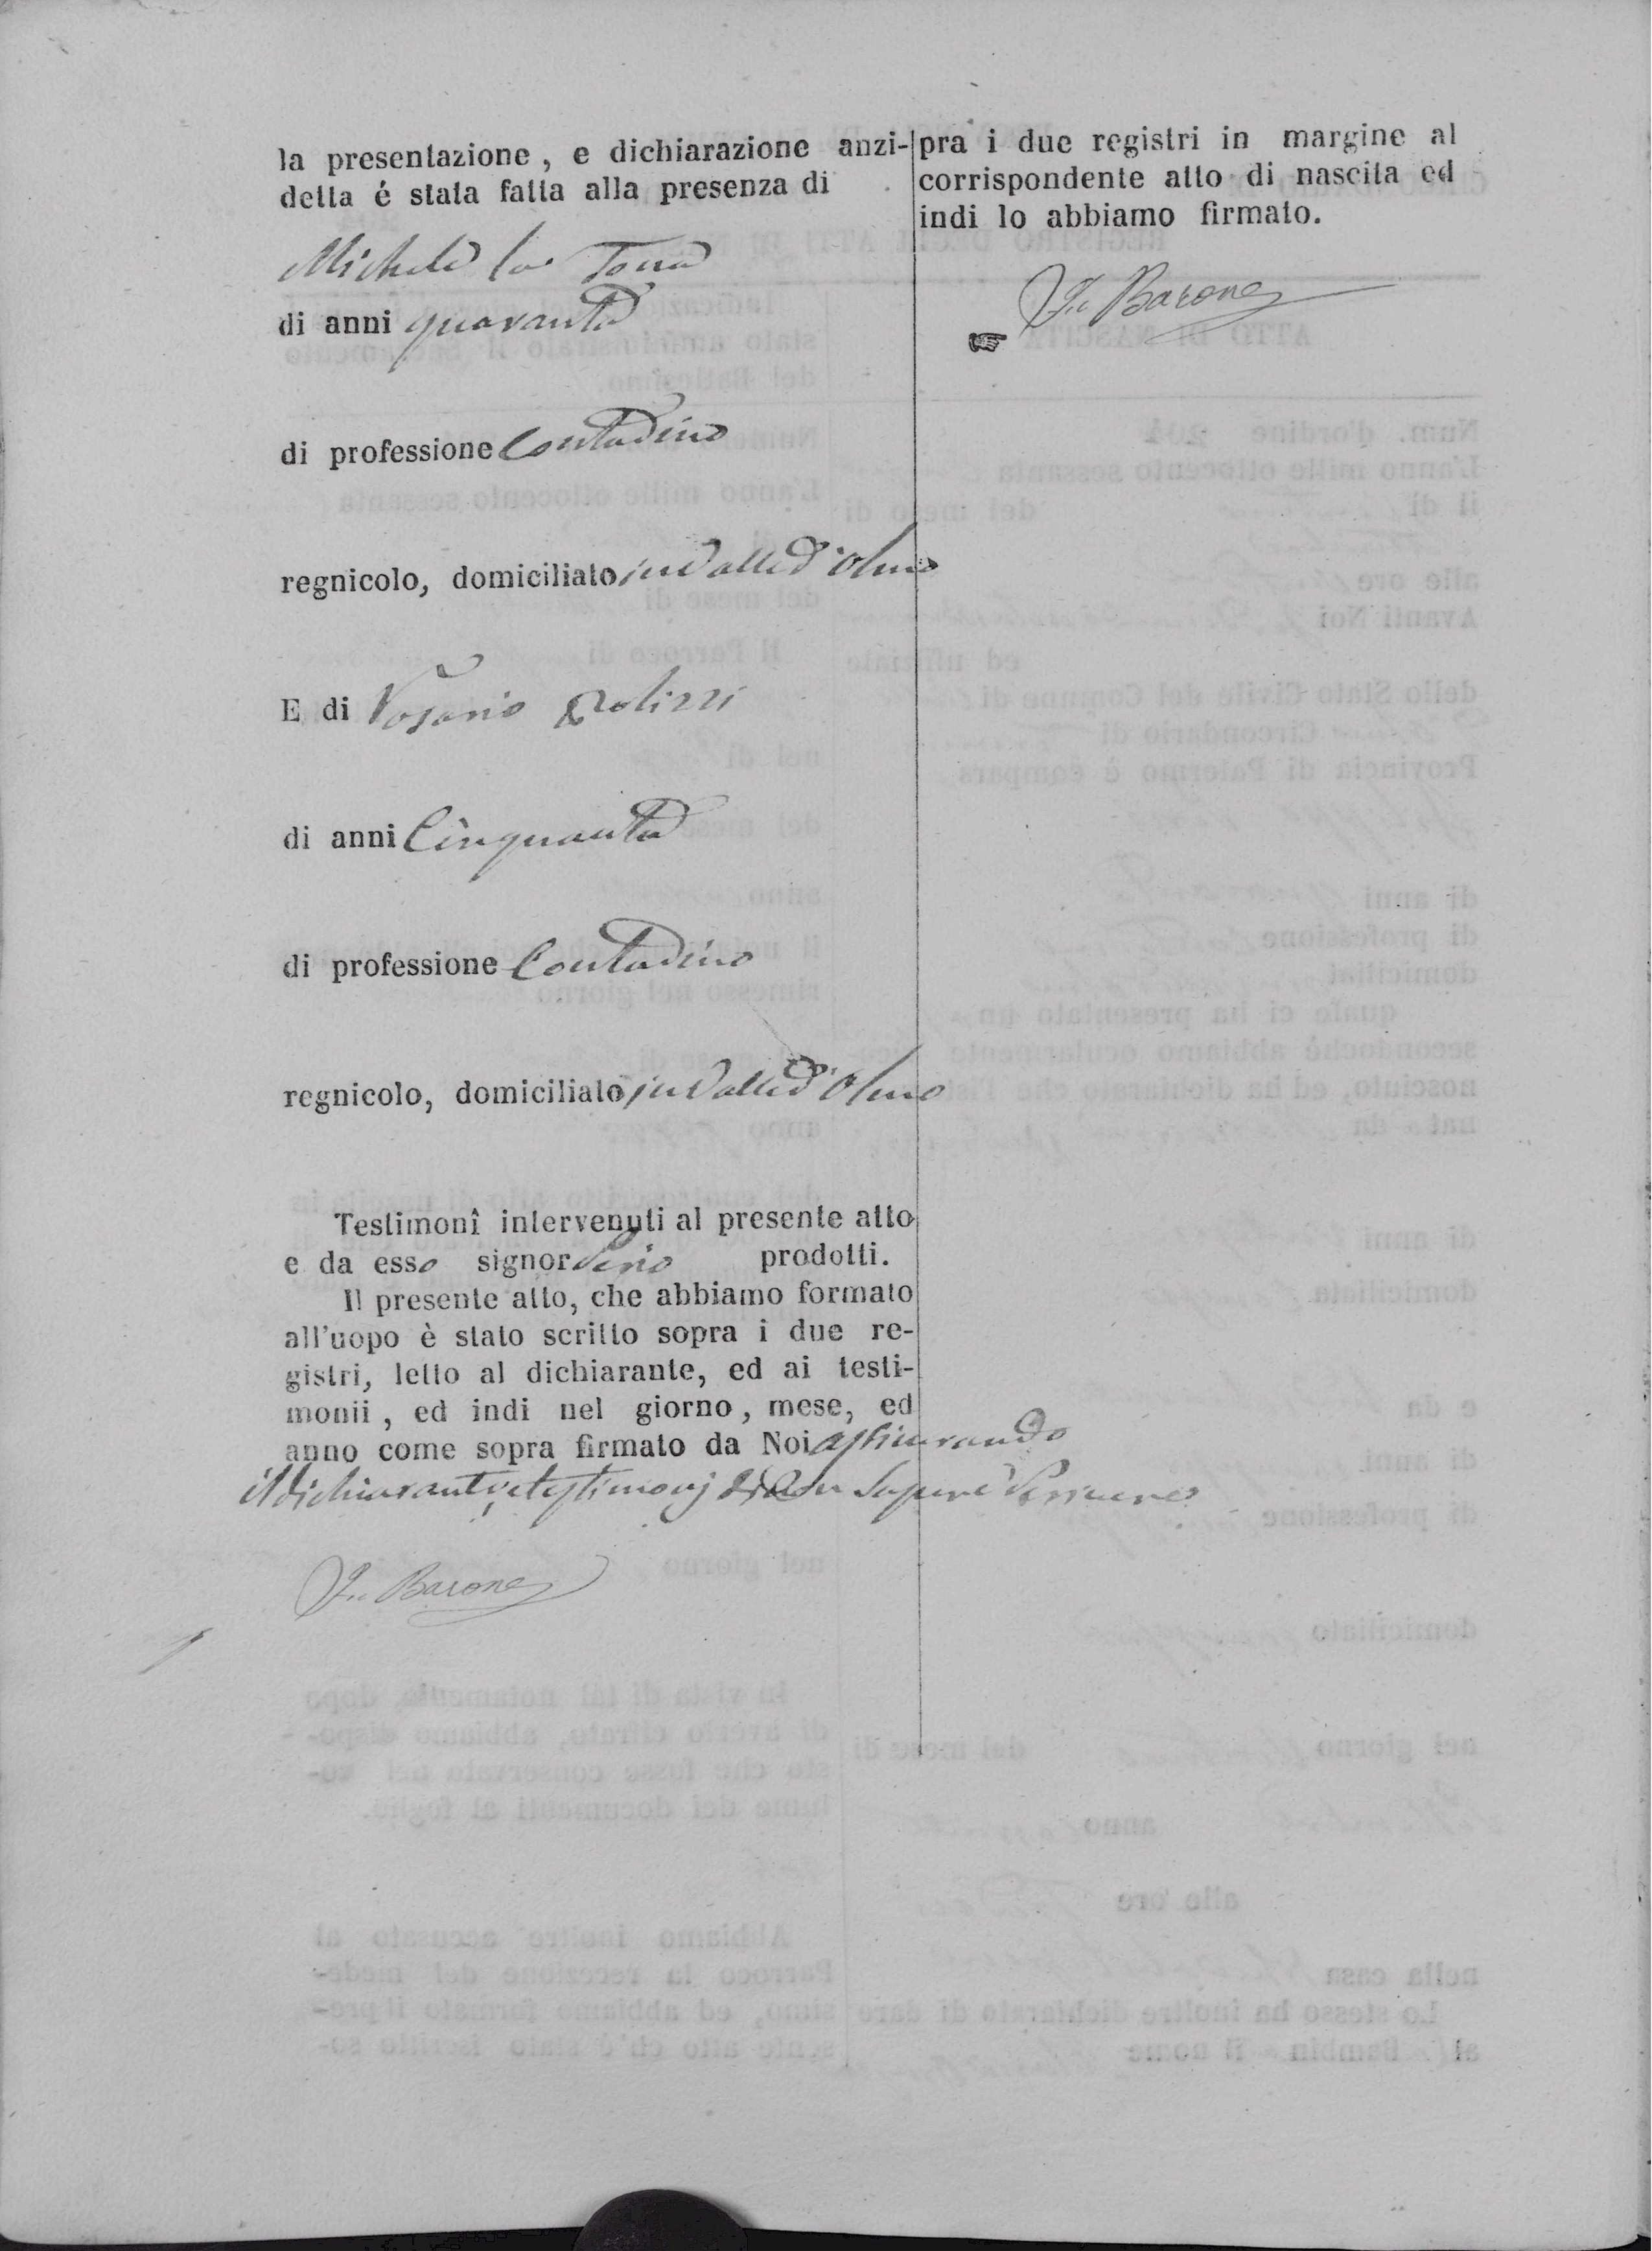 la presentazione, e dichiarazione anzi-
detta é stata fatta alla presenza di
Michele la Torra
di anni quaranta
di professione Contadino
regnicolo, domiciliato in Valled'olmo
E di Rosario Polizzi
di anni Cinquanta
di professione Contadino
regnicolo, domiciliato in Valled'olmo
Testimonî intervenuti al presente atto
e da esso signor prodotti.
Il presente atto, che abbiamo formato
all'uopo è stato scritto sopra i due re-
gistri, letto al dichiarante, ed ai testi-
monii, ed indi nel giorno, mese, ed
anno come sopra firmato da Noi assicurando
il dichiarante, e testimonj di non sapere scrivere
Barone
pra i due registri in margine al
corrispondente atto di nascita ed
indi lo abbiamo firmato.
Barone